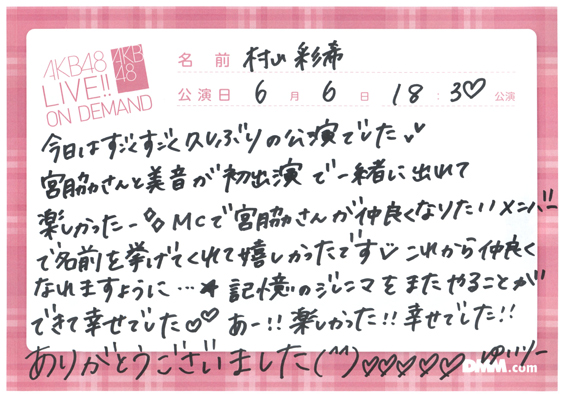 AKB48
LIVE!!
ON DEMAND
AKB
48
名 前 村山 彩希
公演日 6 月 6 日 18 : 30 公演
今日はすごくすごく久しぶりの公演でした
宮脇さんと美音が初出演で一緒に出れて
楽しかったー MCで宮脇さんが仲良くなりたいメンバー
で名前を挙げてくれて嬉しかったです♡ これから仲良く
なれますように…★ 記憶のジレンマをまたやることが
できて幸せでした♡♡ あー!! 楽しかった!! 幸せでした!!
ありがとうございました(^^)♡♡♡♡♡ ゆいりー
DMM.com